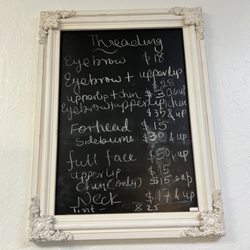 Threading
Eyebrow $18
Eyebrow + upperlip
$25
upperlip + chin $30 & up
Eyebrow/upperlip/chin
$35 & up
Forhead $15
Sideburns $30 & up
full face $50 & up
upperlip $15
Chin (only) $15 & up
Neck $17 & up
Tint - $25